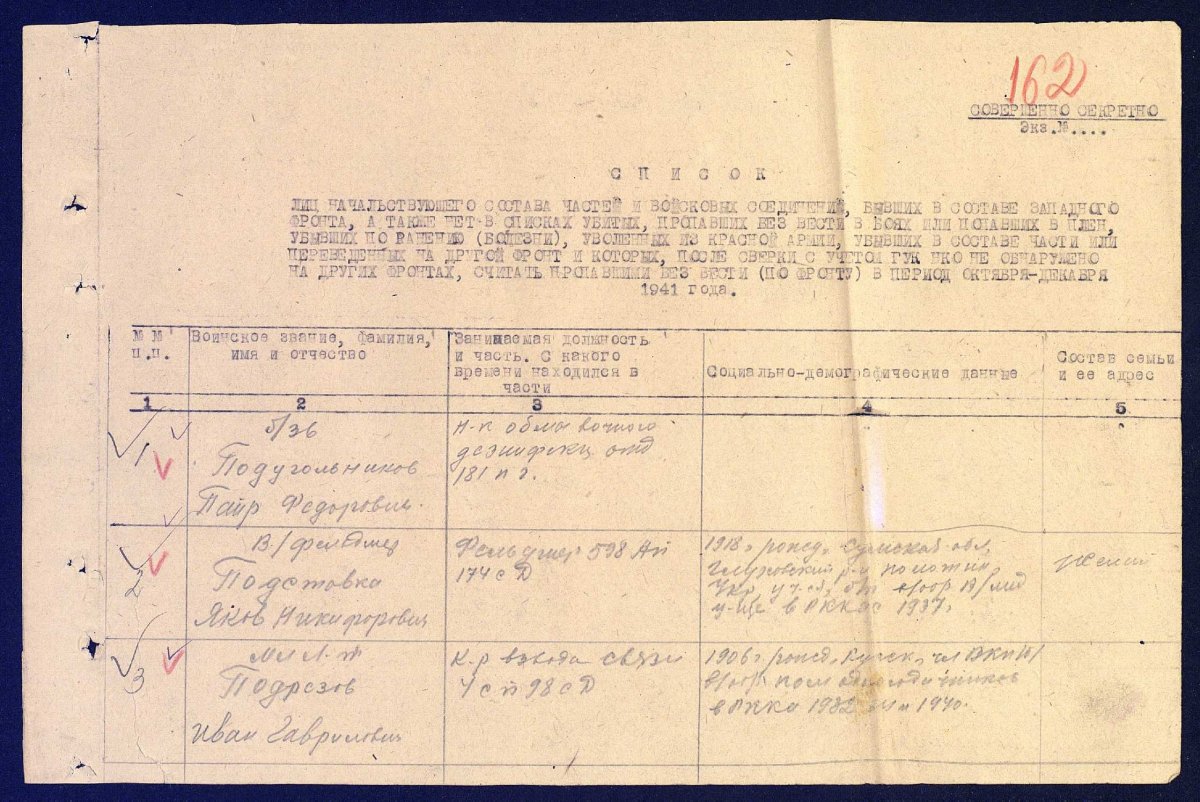 162
СОВЕРШЕННО СЕКРЕТНО
Экз.№....
СПИСОК
ЛИЦ НАЧАЛЬСТВУЮЩЕГО СОСТАВА ЧАСТЕЙ И ВОЙСКОВЫХ СОЕДИНЕНИЙ, БЫВШИХ В СОСТАВЕ ЗАПАДНОГО
ФРОНТА, А ТАКЖЕ НЕТ В СПИСКАХ УБИТЫХ, ПРОПАВШИХ БЕЗ ВЕСТИ В БОЯХ ИЛИ ПОПАВШИХ В ПЛЕН,
УБЫВШИХ ПО РАНЕНИЮ (БОЛЕЗНИ), УВОЛЕННЫХ ИЗ КРАСНОЙ АРМИИ, УБЫВШИХ В СОСТАВЕ ЧАСТИ ИЛИ
ПЕРЕВЕДЕННЫХ НА ДРУГОЙ ФРОНТ И КОТОРЫХ, ПОСЛЕ СВЕРКИ С УЧЕТОМ ГУК НКО НЕ ОБНАРУЖЕНО
НА ДРУГИХ ФРОНТАХ, СЧИТАТЬ ПРОПАВШИМИ БЕЗ ВЕСТИ (ПО ФРОНТУ) В ПЕРИОД ОКТЯБРЯ-ДЕКАБРЯ
1941 года.
№ №
п.п.
Воинское звание, фамилия,
имя и отчество
Занимаемая должность
и часть. С какого
времени находился в
части
Социально-демографические данные
Состав семьи
и ее адрес
1 2 3 4 5
1
б/зв
Подугольников
Федорович
Н-к обмывочного
дезинфекц отд
181 п г.
2
В/фельдшер
Подставка
Яков Никифорович
Фельдшер 598 Ап
174 с Д
1918 г рожд, Сумской обл,
Глуховский р-н
Укр в/обр В/мед
у-ще в РККА с 1937 г
3
мл л-т
Подрезов
Иван Гаврилович
К-р взвода связи
4 с п 98 с Д
1906 г рожд,
в/обр
в РККА 1932 1940.